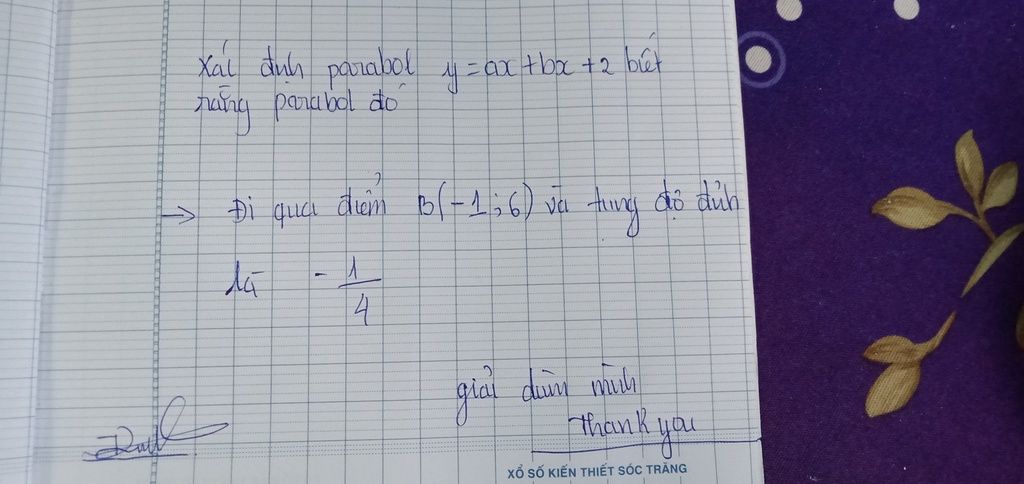 Xác định parabol y = ax + bx + 2 biết
rằng parabol đó
→ Đi qua điểm B(-1;6) và tung độ đỉnh
là - 1/4
giải dùm mình
Thank you
XỔ SỐ KIẾN THIẾT SÓC TRĂNG